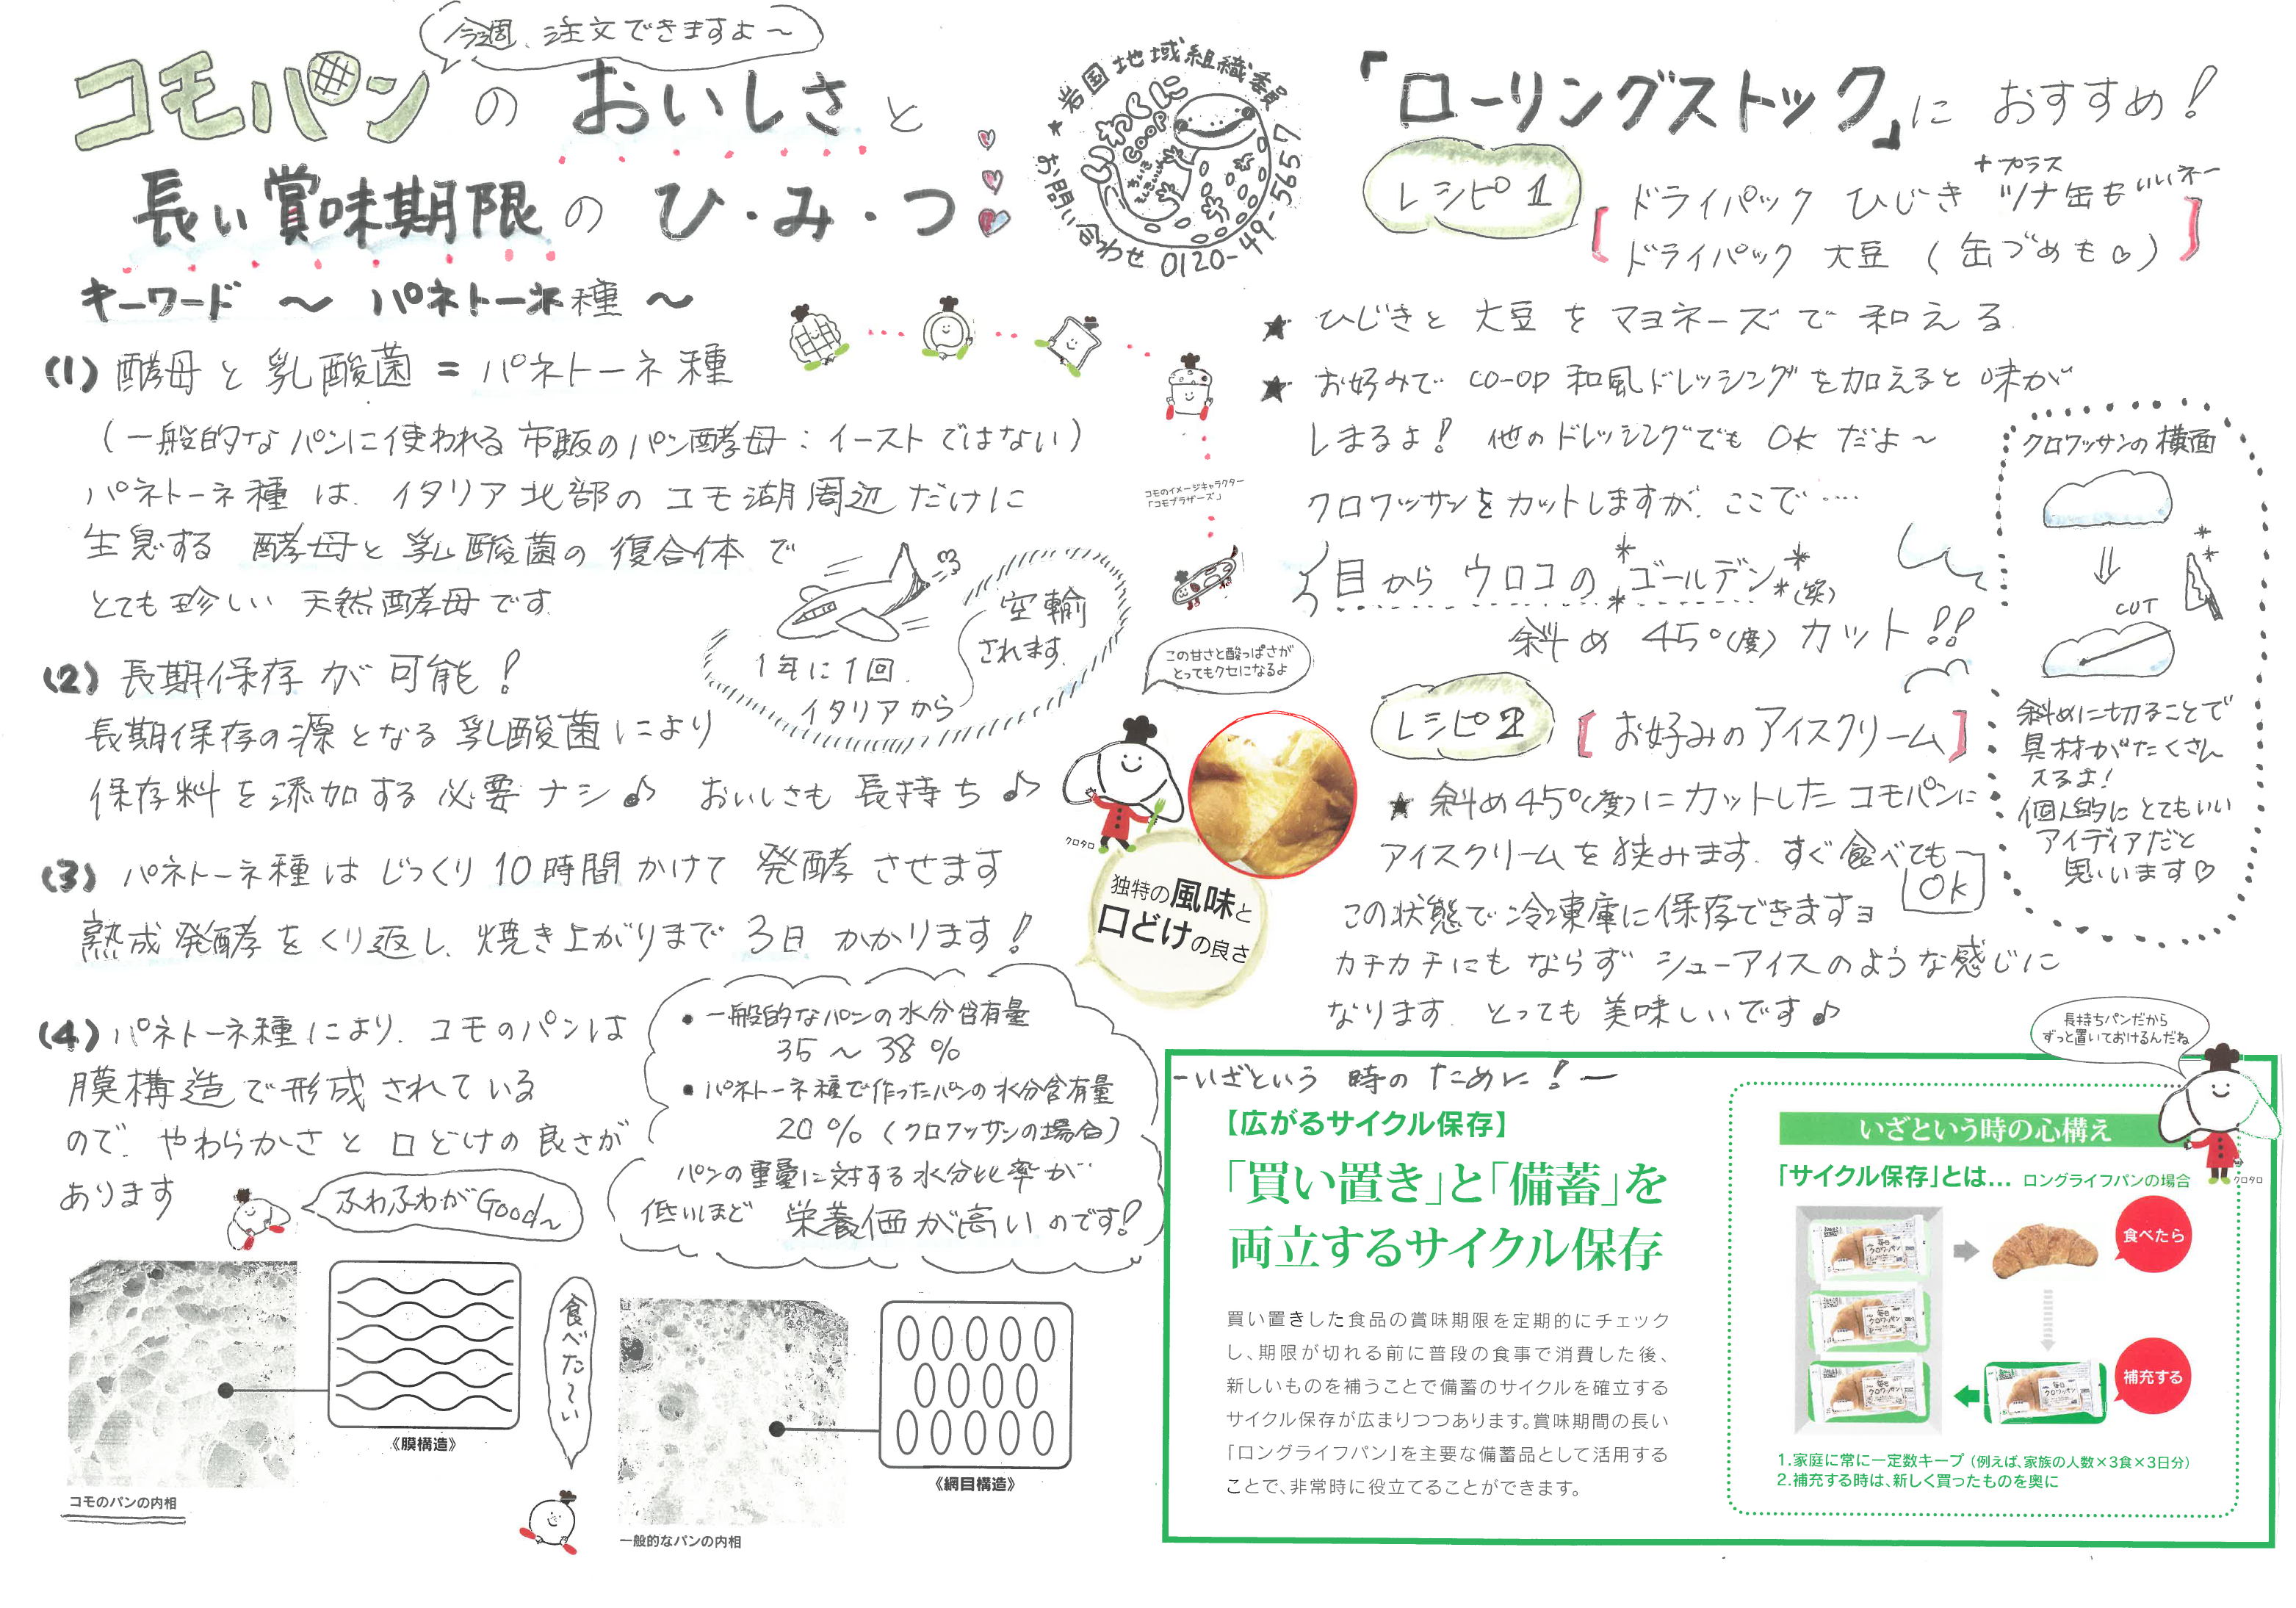 今週、注文できますよ～
コモパンのおいしさと
長い賞味期限のひ・み・つ
★岩国地域組織委員
いわくに
COOP
お問い合わせ 0120-49-5657
キーワード ～ パネトーネ種 ～
(1) 酵母と乳酸菌 = パネトーネ種
(一般的なパンに使われる市販のパン酵母：イーストではない)
パネトーネ種は、イタリア北部のコモ湖周辺だけに
生息する 酵母と乳酸菌の複合体で
とても珍しい 天然酵母です
1年に1回
イタリアから
空輸
されます
コモのイメージキャラクター
「コモブラザーズ」
(2) 長期保存が可能！
長期保存の源となる乳酸菌により
保存料を添加する必要ナシ♪ おいしさも長持ち♪
この甘さと酸っぱさが
とってもクセになるよ
クロタロ
独特の風味と
口どけの良さ
(3) パネトーネ種はじっくり10時間かけて発酵させます
熟成発酵をくり返し、焼き上がりまで3日かかります！
(4) パネトーネ種により、コモのパンは
膜構造で形成されている
ので、やわらかさと口どけの良さが
あります
ふわふわがGood～
・一般的なパンの水分含有量
35～38%
・パネトーネ種で作ったパンの水分含有量
20%(クロワッサンの場合)
パンの重量に対する水分比率が
低いほど 栄養価が高いのです！
《膜構造》
コモのパンの内相
食べた～い
《網目構造》
一般的なパンの内相
「ローリングストック」におすすめ！
レシピ1
ドライパック ひじき +プラス ツナ缶もいいネー
ドライパック 大豆 (缶づめも♡)
★ ひじきと大豆をマヨネーズで和える
★ お好みでCO-OP和風ドレッシングを加えると味が
しまるよ！ 他のドレッシングでもOKだよ～
クロワッサンをカットしますが、ここで‥‥
目からウロコの*ゴールデン*(笑)
斜め45°(度)カット!!
クロワッサンの横面
CUT
斜めに切ることで
具材がたくさん
入るよ！
個人的にとてもいい
アイディアだと
思います♡
レシピ2 [お好みのアイスクリーム]
★ 斜め45°(度)にカットしたコモパンに
アイスクリームを挟みます。すぐ食べても
OK
この状態で冷凍庫に保存できますヨ
カチカチにもならずシューアイスのような感じに
なります。とっても美味しいです♪
長持ちパンだから
ずっと置いておけるんだね
クロタロ
－いざという時のために！－
【広がるサイクル保存】
「買い置き」と「備蓄」を
両立するサイクル保存
買い置きした食品の賞味期限を定期的にチェック
し、期限が切れる前に普段の食事で消費した後、
新しいものを補うことで備蓄のサイクルを確立する
サイクル保存が広まりつつあります。賞味期間の長い
「ロングライフパン」を主要な備蓄品として活用する
ことで、非常時に役立てることができます。
いざという時の心構え
「サイクル保存」とは… ロングライフパンの場合
食べたら
補充する
毎日
クロワッサン
1.家庭に常に一定数キープ (例えば、家族の人数×3食×3日分)
2.補充する時は、新しく買ったものを奥に